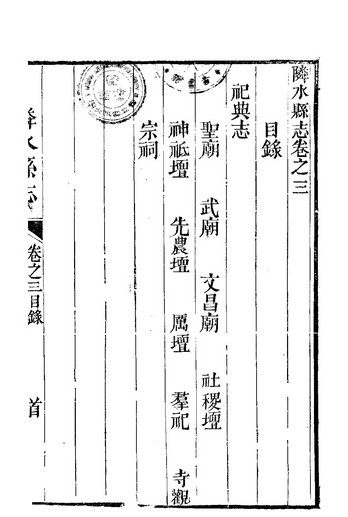 隣水縣志卷之三
目錄
祀典志
聖廟 武廟 文昌廟 社稷壇
神祇壇 先農壇 厲壇 羣祀 寺觀
宗祠
卷之三目錄 首